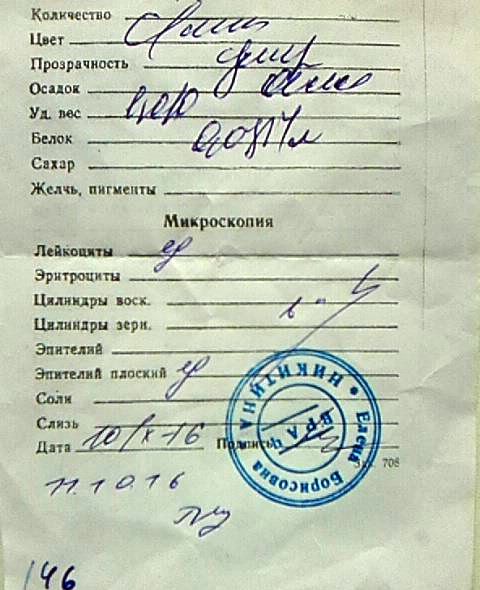 Количество
Цвет
Прозрачность
Осадок
Уд. вес
Белок
Сахар
Желчь, пигменты
Микроскопия
Лейкоциты ед
Эритроциты
Цилиндры воск.
Цилиндры зерн.
Эпителий
Эпителий плоский ед
Соли
Слизь
Дата 10/X-16 Подпись
Елена Борисовна НИКИТИНА
ВРАЧ
708
11.10.16
146